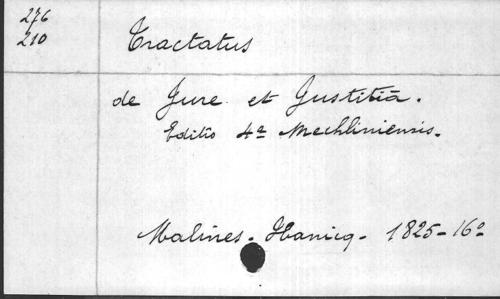 276
210
Tractatus
de Jure et Justitiâ.
Editio 4ª Mechliniensis.
Malines - Hanicq - 1825 - 16º